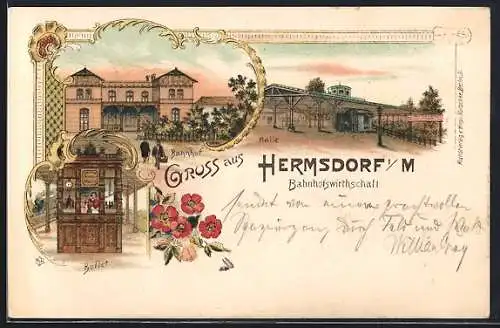 Bahnhof
Halle
Gruss aus
HERMSDORF i/M
Bahnhofswirthschaft
Buffet
sendet von einem prachtvollen
Spaziergang, durch Feld und